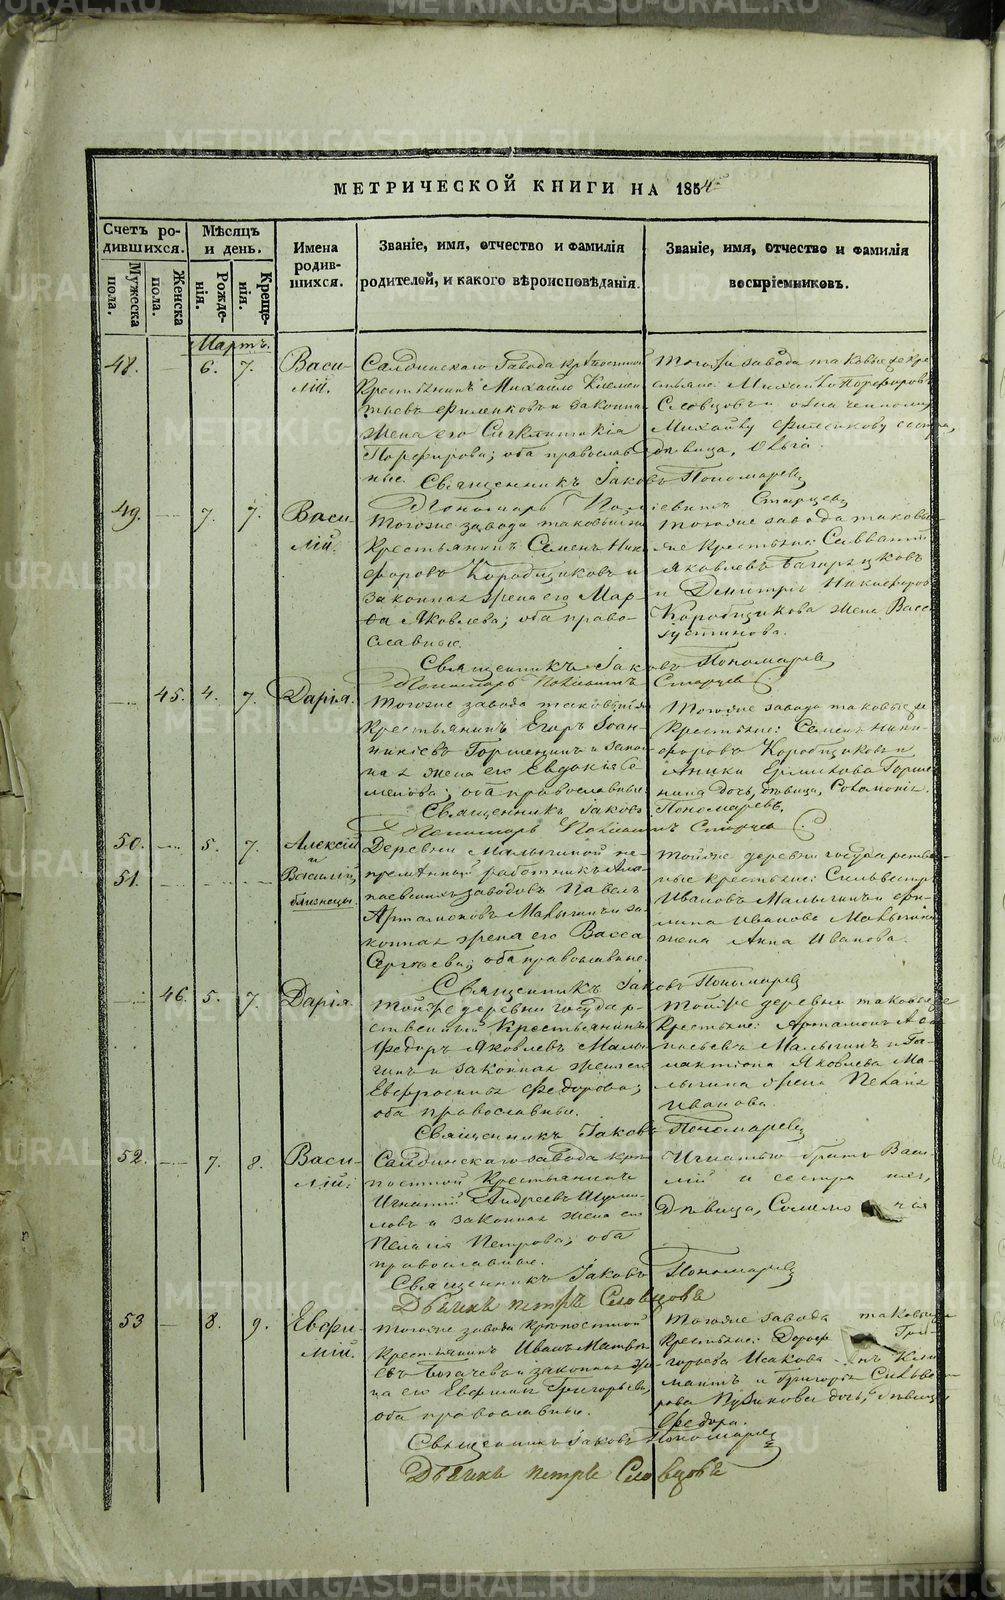 МЕТРИЧЕСКОЙ КНИГИ НА 1854
Счетъ родившихся.
Мужеска пола.
Женска пола.
Мѣсяцъ и день.
Рожденія.
Крещенія.
Имена родившихся.
Званіе, имя, отчество и фамилія
родителей, и какого вѣроисповѣданія.
Званіе, имя, отчество и фамилія
воспріемниковъ.
Мартъ.
48. 6. 7. Василій.
Салдинскаго завода крѣпостной
Крестьянинъ Михайло
и законная
жена его Сигклитикія
Порфирова; оба православные.
Тогоже завода таковые же крестьяне: Михайло Порфировъ
Словцовъ и
Михайлу сестра,
дѣвица, Ольга
Священникъ Іаковъ Пономаревъ
Пономарь Старцевъ
49. 7. 7. Василій.
Тогоже завода таковый же
Крестьянинъ Семенъ Никифоровъ Коробщиковъ и
законная жена его Марфа Яковлева; оба православные.
Тогоже завода таковые
же крестьяне: Савватій
Яковлевъ
и Димитрія Никифорова
Коробщикова жена Васса
Іустинова.
Священникъ Іаковъ Пономаревъ
Пономарь Старцевъ
45. 4. 7. Дарія.
Тогоже завода таковый же
крестьянинъ Егоръ Іоанникіевъ Горшенинъ и законная жена его Евдокія
оба православные.
Тогоже завода таковые же
крестьяне: Семенъ Никифоровъ Коробщиковъ и
Аники Ермилова Горшенина дочь, дѣвица, Соломонія.
Священникъ Іаковъ Пономаревъ,
Пономарь Старцевъ
50. 5. 7. Алексій
и
51. Василій,
близнецы.
Деревни Малыгиной непремѣнный работникъ
заводовъ Павелъ
Артамоновъ Малыгинъ и законная жена его Васса
Сергѣева; оба православные.
Тойже деревни государственные крестьяне: Сильвестръ
Ивановъ Малыгинъ и
Иванова Малыгина
жена Анна Иванова.
Священникъ Іаковъ Пономаревъ
46. 5. 7. Дарія.
Тойже деревни государственный Крестьянинъ
Федоръ Яковлевъ Малыгинъ и законная жена его
Евфросинія Федорова;
оба православные.
Тойже деревни таковые же
крестьяне: Артамонъ
Малыгинъ и Галактіона Яковлева Малыгина жена Пелагія
Иванова.
Священникъ Іаковъ Пономаревъ
52. 7. 8. Василій.
Салдинскаго завода крѣпостной Крестьянинъ
Игнатій Андреевъ
и законная жена его
Пелагія Петрова; оба
православные.
Игнатью братъ Василій и сестра
дѣвица,
Священникъ Іаковъ Пономаревъ
Дьячекъ Петръ Словцовъ
53. 8. 9. Евфимій.
Тогоже завода крѣпостной
крестьянинъ Иванъ Матвѣевъ и законная жена его Григорьева,
оба православные.
Тогоже завода таковые же
Крестьяне:
Григорьева Исакова
и Григорія Сильвестрова дочь, дѣвица
Федора.
Священникъ Іаковъ Пономаревъ
Дьячекъ Петръ Словцовъ
METRIKI.GASO-URAL.RU